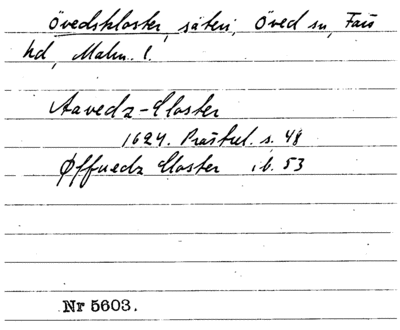 Övedskloster, säteri, Öved sn, Färs
hd, Malm. l.
Aavedz-Closter
1624. Prästrel. s. 48
Øffuedz Closter ib. 53
Nr 5603.